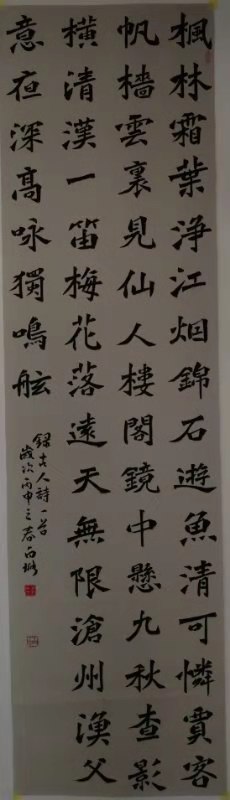 楓林霜葉浄江烟錦石遊魚清可憐賈客
帆檣雲裏見仙人樓閣鏡中懸九秋查影
橫清漢一笛梅花落遠天無限滄州漁父
意夜深高咏獨鳴舷
錄古人詩一首
歲次丙申之春